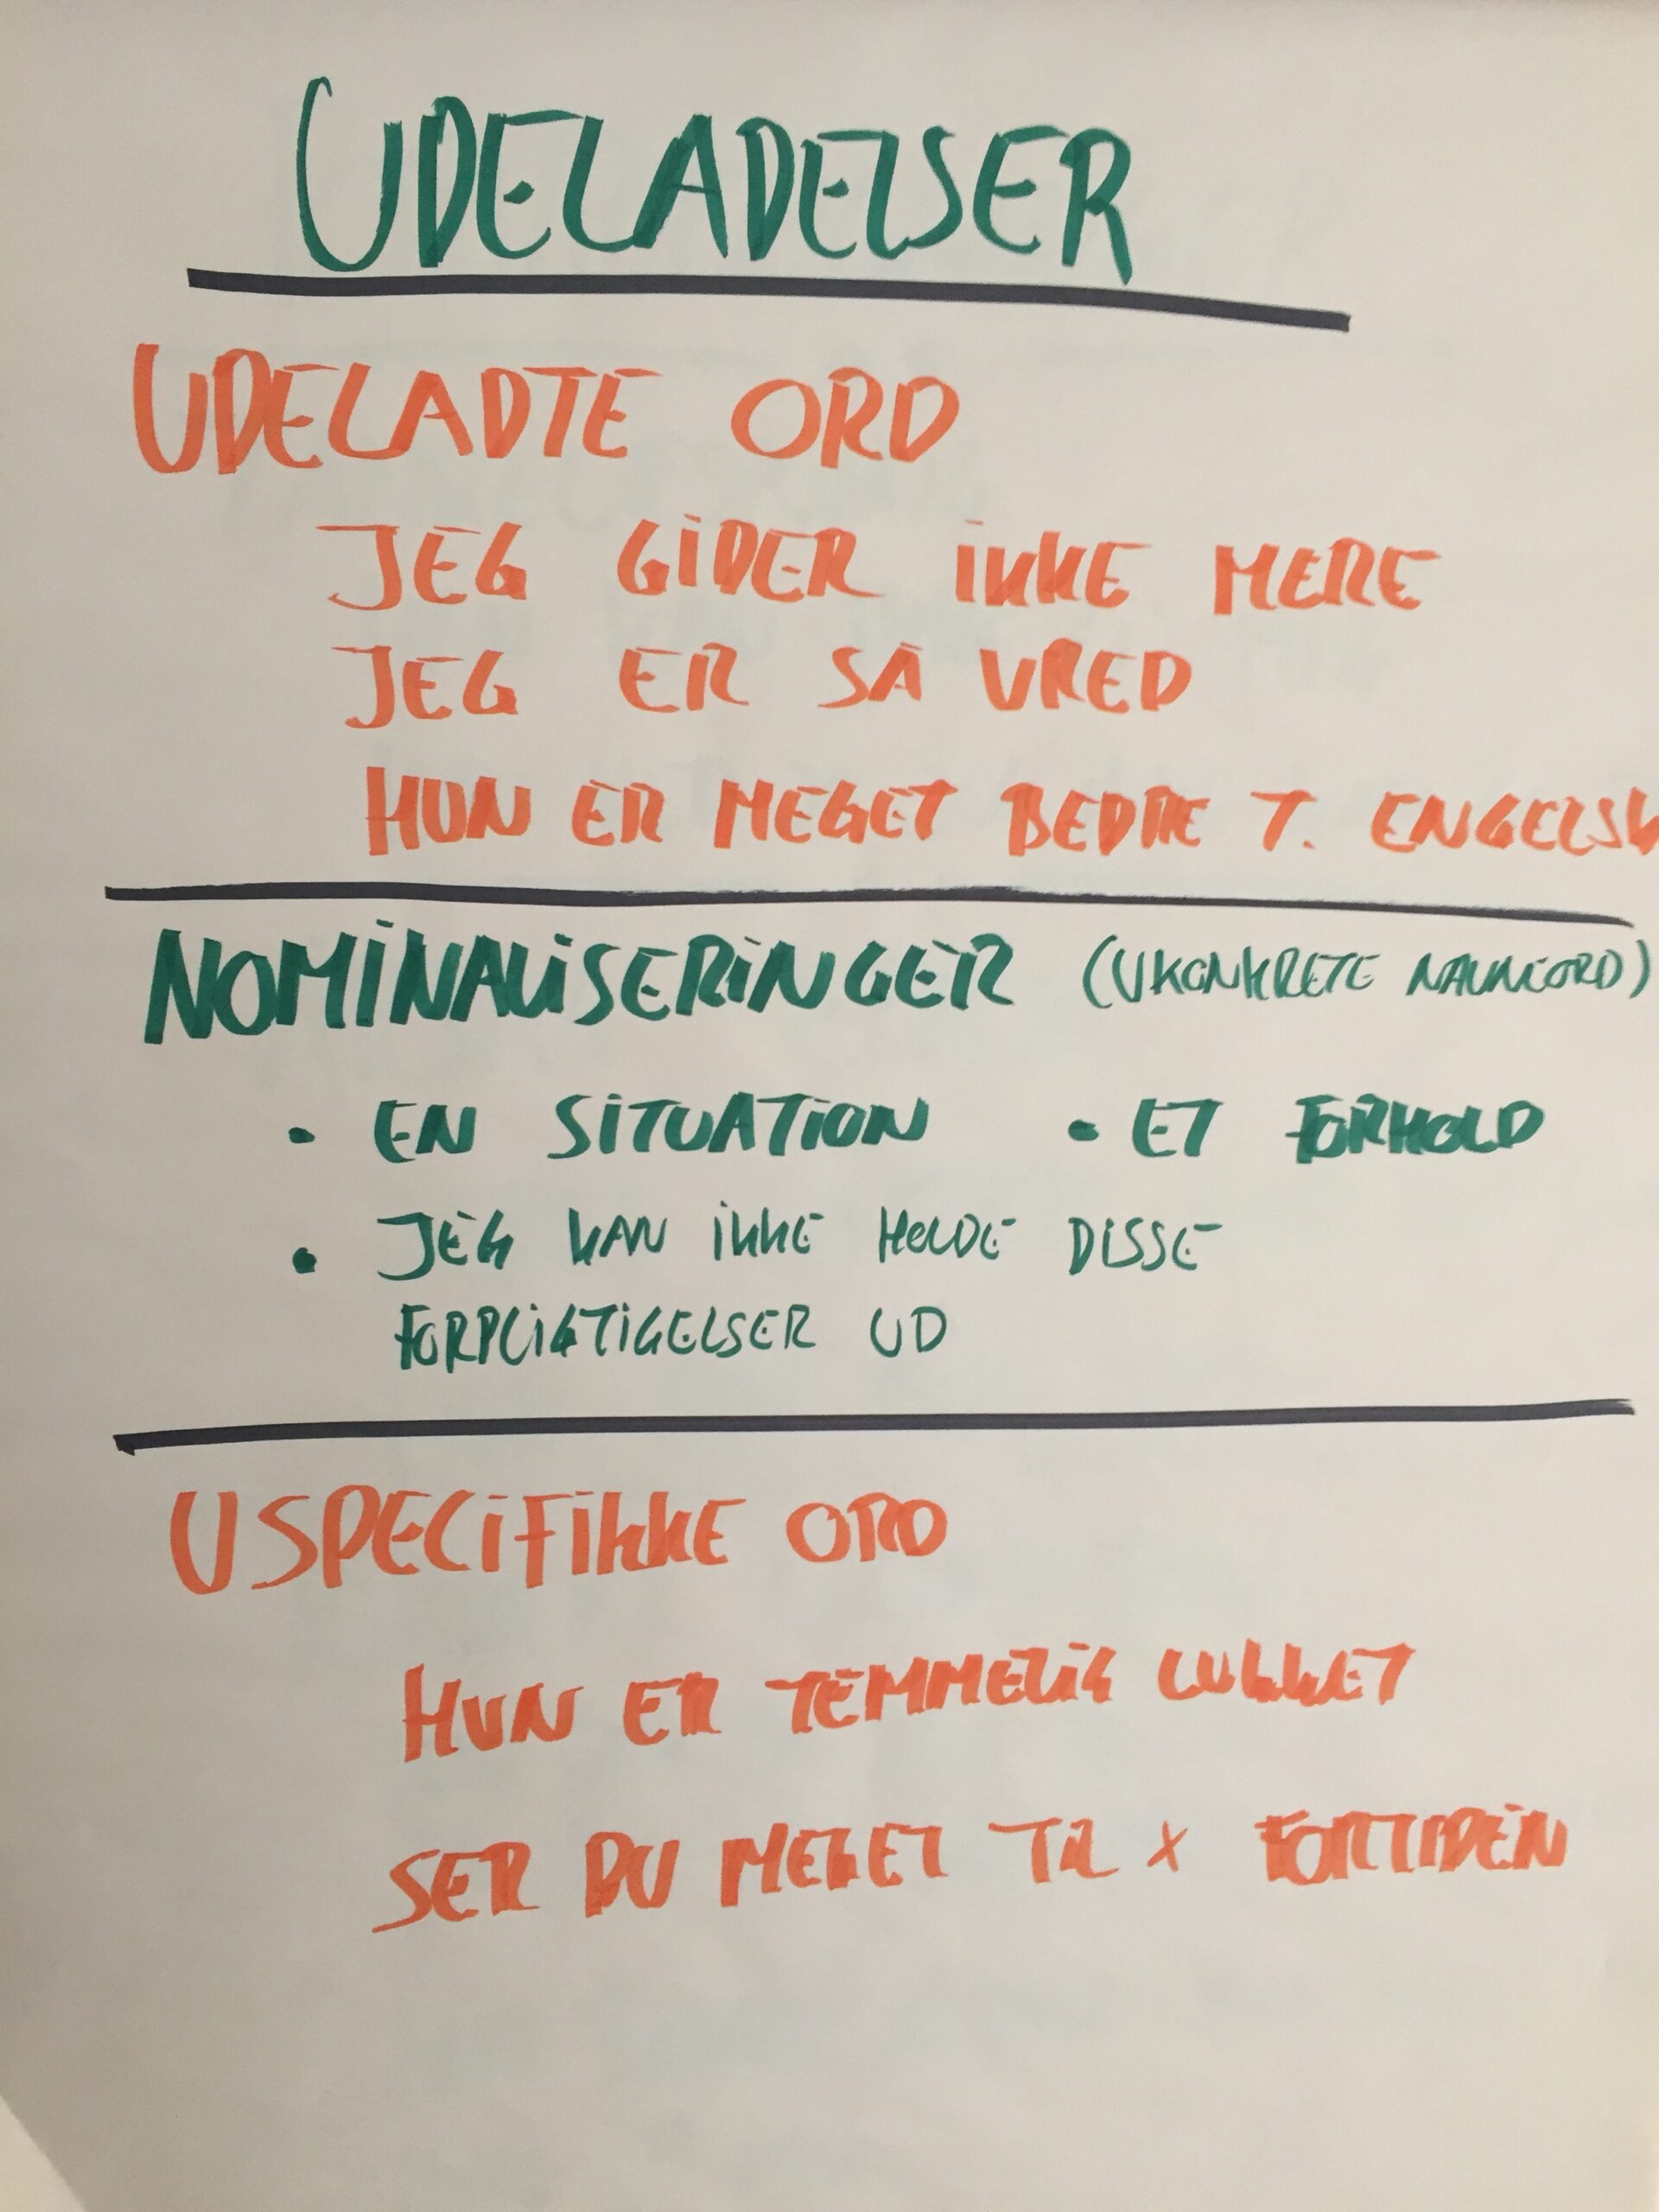 UDELADELSER
UDELADTE ORD
JEG GIDER IKKE MERE
JEG ER SÅ VRED
HUN ER MEGET BEDRE T. ENGELSK
NOMINALISERINGER (UKONKRETE NAVNEORD)
• EN SITUATION • ET FORHOLD
• JEG KAN IKKE HOLDE DISSE
FORPLIGTIGELSER UD
USPECIFIKKE ORD
HUN ER TEMMELIG LUKKET
SER DU MEGET TIL X FORTIDEN